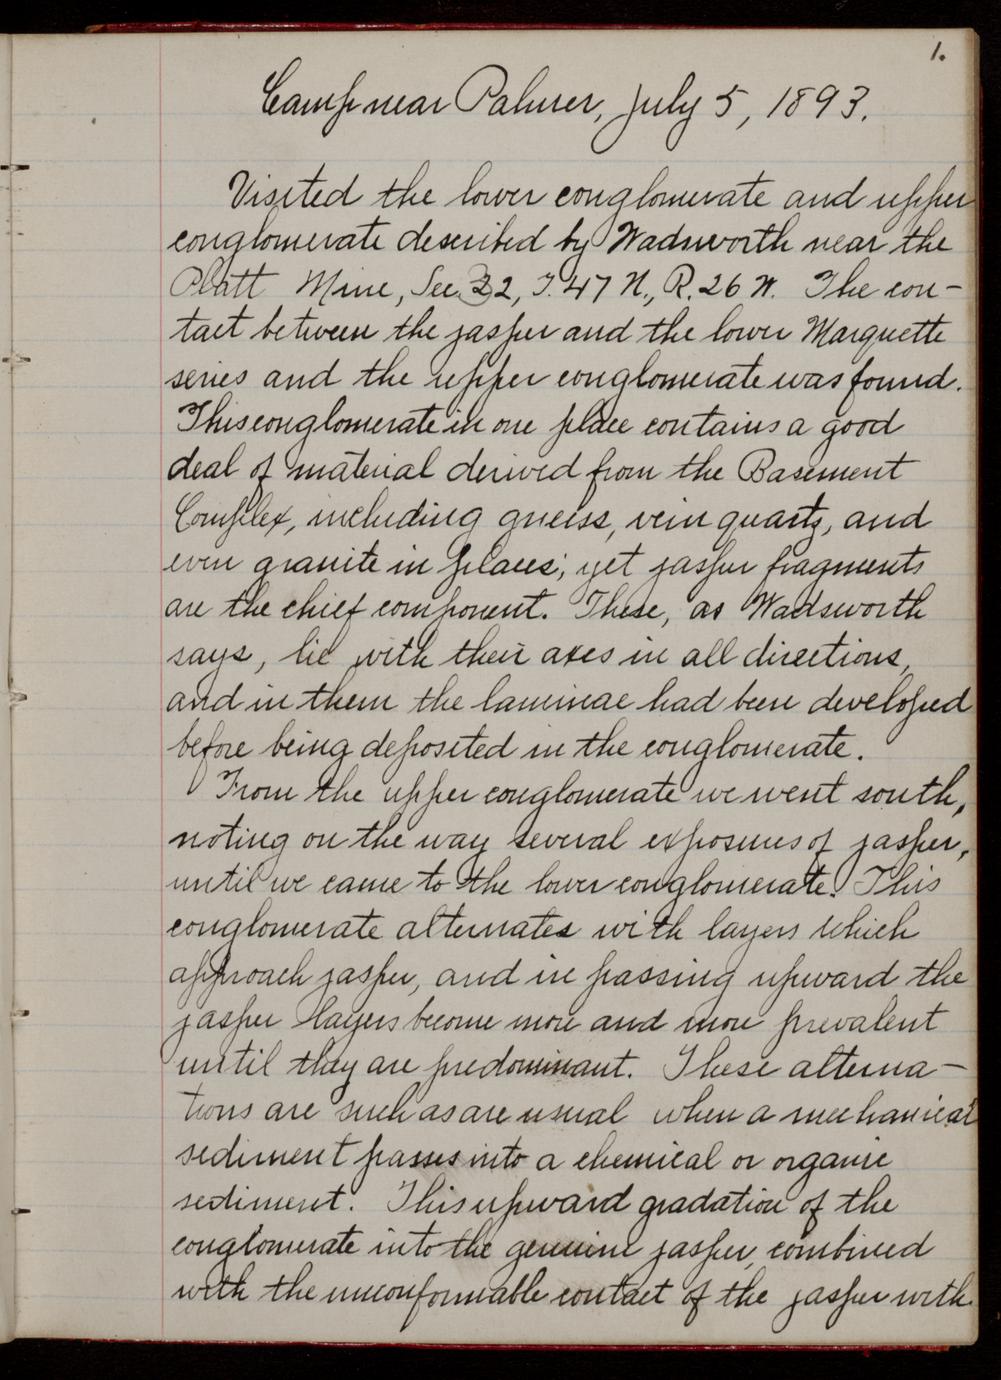 1.
Camp near Palmer, July 5, 1893.
Visited the lower conglomerate and upper
conglomerate described by Wadsworth near the
Platt Mine, Sec. 32, T. 47 N., R. 26 W. The con-
tact between the jasper and the lower Marquette
series and the upper conglomerate was found.
This conglomerate in one place contains a good
deal of material derived from the Basement
Complex, including gneiss, vein quartz, and
even granite in places; yet jasper fragments
are the chief component. These, as Wadsworth
says, lie with their axes in all directions,
and in them the laminae had been developed
before being deposited in the conglomerate.
From the upper conglomerate we went south,
noting on the way several exposures of jasper,
until we came to the lower conglomerate. This
conglomerate alternates with layers which
approach jasper, and in passing upward the
jasper layers become more and more prevalent
until they are predominant. These alterna-
tions are such as are usual when a mechanical
sediment passes into a chemical or organic
sediment. This upward gradation of the
conglomerate into the genuine jasper, combined
with the unconformable contact of the jasper with